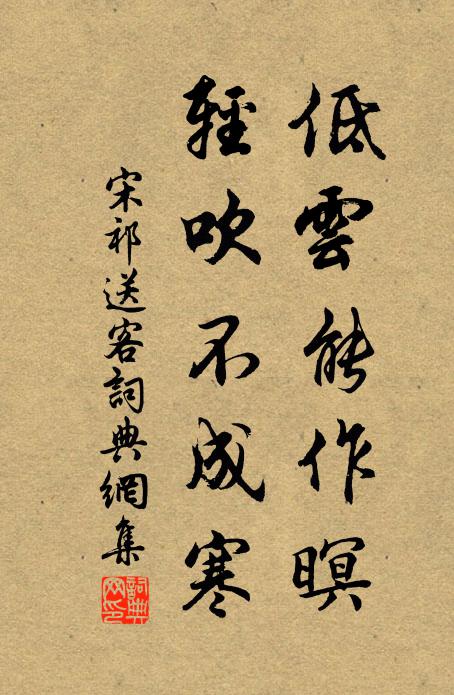 低雲能作暝
輕吹不成寒
宋祁送客詞典網集
詞典网印